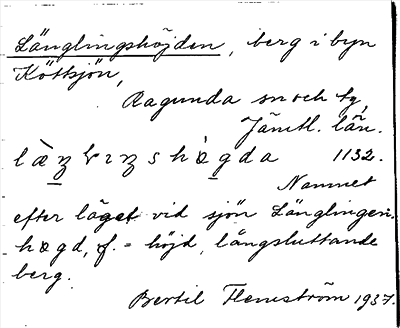 Länglingshöjden, berg i byn
Köttsjön,
Ragunda sn och tg,
Jämtl. län.
læ̀ŋlɩŋshø̀gda 1132.
Namnet
efter läget vid sjön Länglingen.
høgd, f. = höjd, långsluttande
berg.
Bertil Flemström 1937.